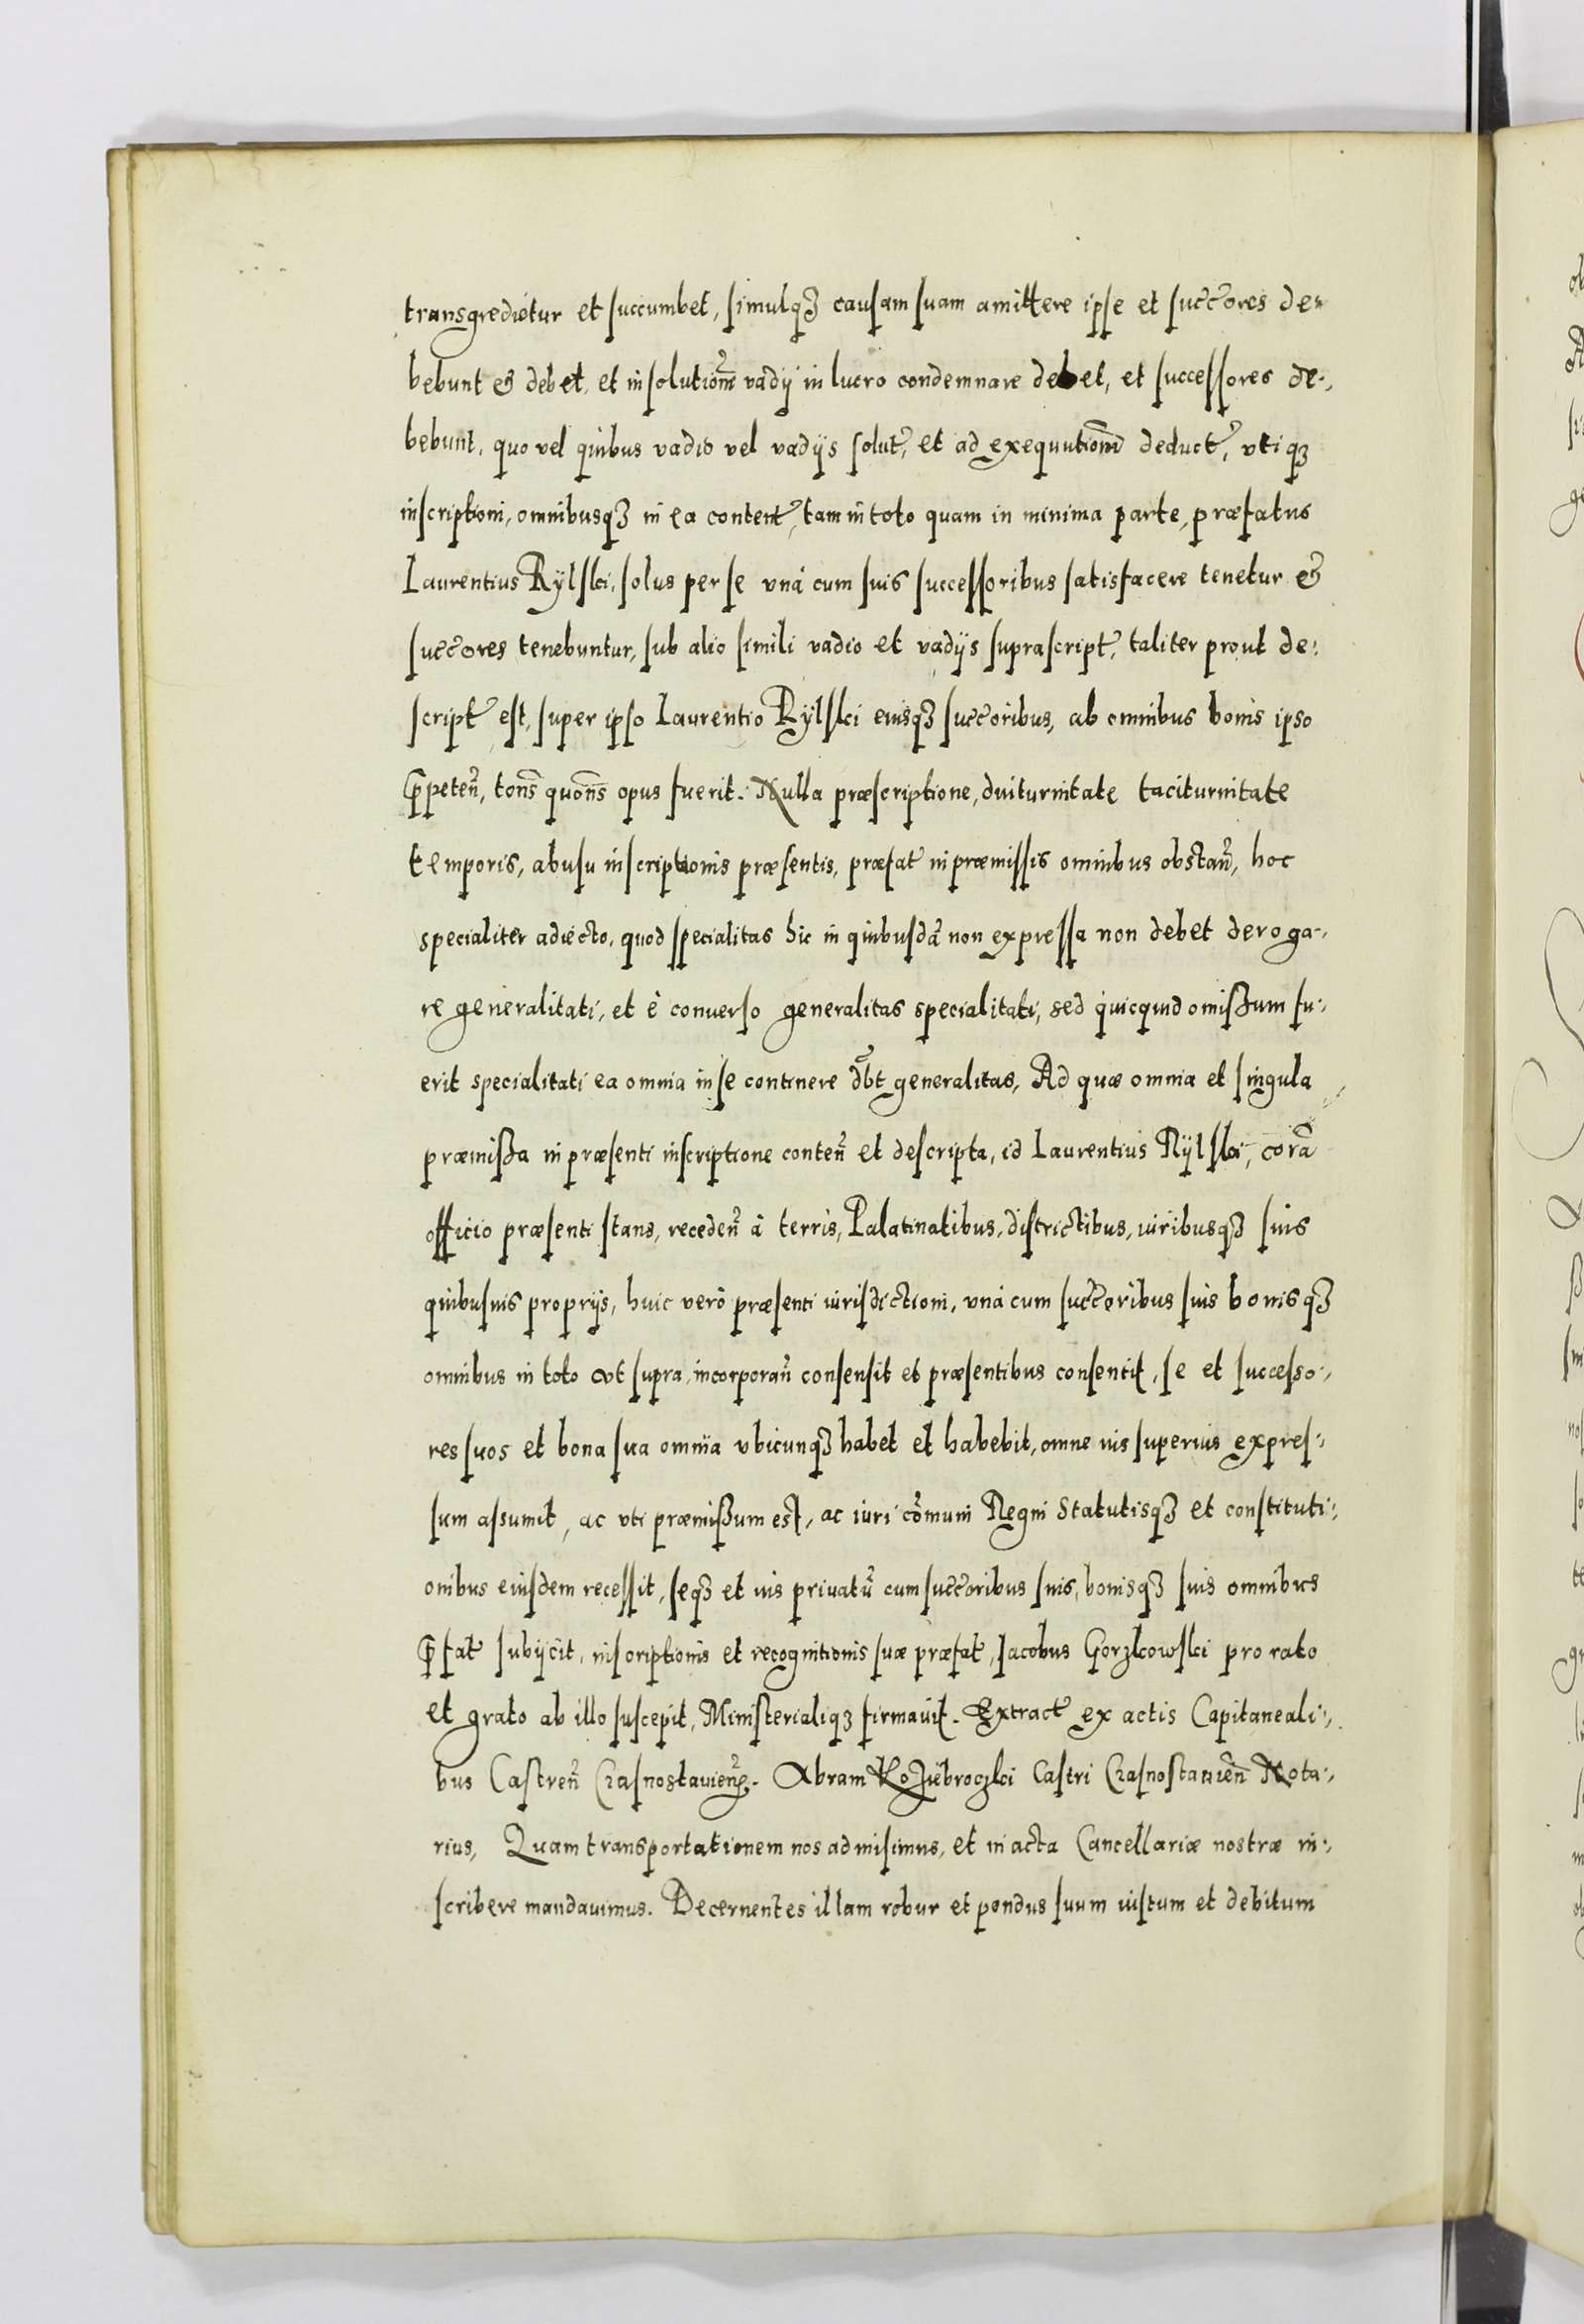 transgredietur et succumbet, simulqȝ causam suam amittere ipse et succores de⸗
bebunt & debet, et in solutionē vadij in lucro condemnare debet, et successores de⸗,
bebunt, quo vel quibus vadio vel vadijs solut, et ad exequutionē deduct, vti qȝ
inscriptioni, omnibusqȝ in ea content, tam in toto quam in minima parte, præfatus
Laurentius Rÿlski, solus per se vnà cum suis successoribus satisfacere tenetur &
succores tenebuntur, sub alio simili vadio et vadijs suprascript, taliter prout de:
script est, super ipso Laurentio Rÿlski eiusqȝ succoribus, ab omnibus bonis ipso
p̄peteñ, tons̄ quons̄ opus fuerit. Nulla præscriptione, diuturnitate taciturnitate
temporis, abusu inscriptionis præsentis, præfat in præmissis omnibus obstañ, hoc
specialiter adiecto, quod specialitas hic in quibusdā non expressa non debet deroga⸗,
re generalitati, et è conuerso generalitas specialitati, sed quicquid omißum fu⸗,
erit specialitati ea omnia in se continere dēbt generalitas, Ad quæ omnia et singula
præmißa in præsenti inscriptione conteñ et descripta, id Laurentius Rÿlski, corā
officio præsenti stans, recedeñ à terris, Palatinatibus, districtibus, iuribusqȝ suis
quibusuis proprijs, huic verò præsenti iurisdictioni, vnà cum succoribus suis bonisqȝ
omnibus in toto vt supra, incorporañ consensit et præsentibus consentit, se et successo⸗,
res suos et bona sua omnia vbicunqȝ habet et habebit, omne ius superius expres⸗,
sum assumit, ac vti præmißum est, ac iuri cōmuni Regni Statutisqȝ et constituti⸗,
onibus eiusdem recessit, seqȝ et ius priuatū cum succoribus suis, bonisqȝ suis omnibus
p̄fat subijcit, inscriptionis et recognitionis suæ præfat, Iacobus Gorzkowski pro rato
et grato ab illo suscepit, Ministerialiqȝ firmauit. Extract ex actis Capitaneali⸗,
bus Castreñ Crasnostauieñ. Abram Koziebroczki Castri Crasnostauieñ Nota⸗,
rius, Quam transportationem nos admisimus, et in acta Cancellariæ nostræ in⸗,
scribere mandauimus. Decernentes illam robur et pondus suum iustum et debitum